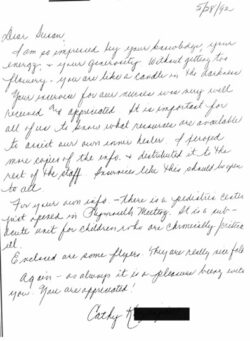 5/28/92
Dear Susan,
I am so impressed by your knowledge, your
energy, & your generosity. Without getting too
flowery - you are like a candle in the darkness
Your inservice for our nurses was very well
received & appreciated. It is important for
all of us to learn what resources are available
to assist our own inner healer. I xeroxed
more copies of the info. & distributed it to the
rest of the staff. Inservices like this should be open
to all.
For your own info - there is a pediatric center
just opened in Plymouth Meeting. It is a sub-
acute unit for children who are chronically
ill.
Enclosed are some flyers. They are really nice folks
Again - as always it is a pleasure being with
you. You are appreciated!
Cathy